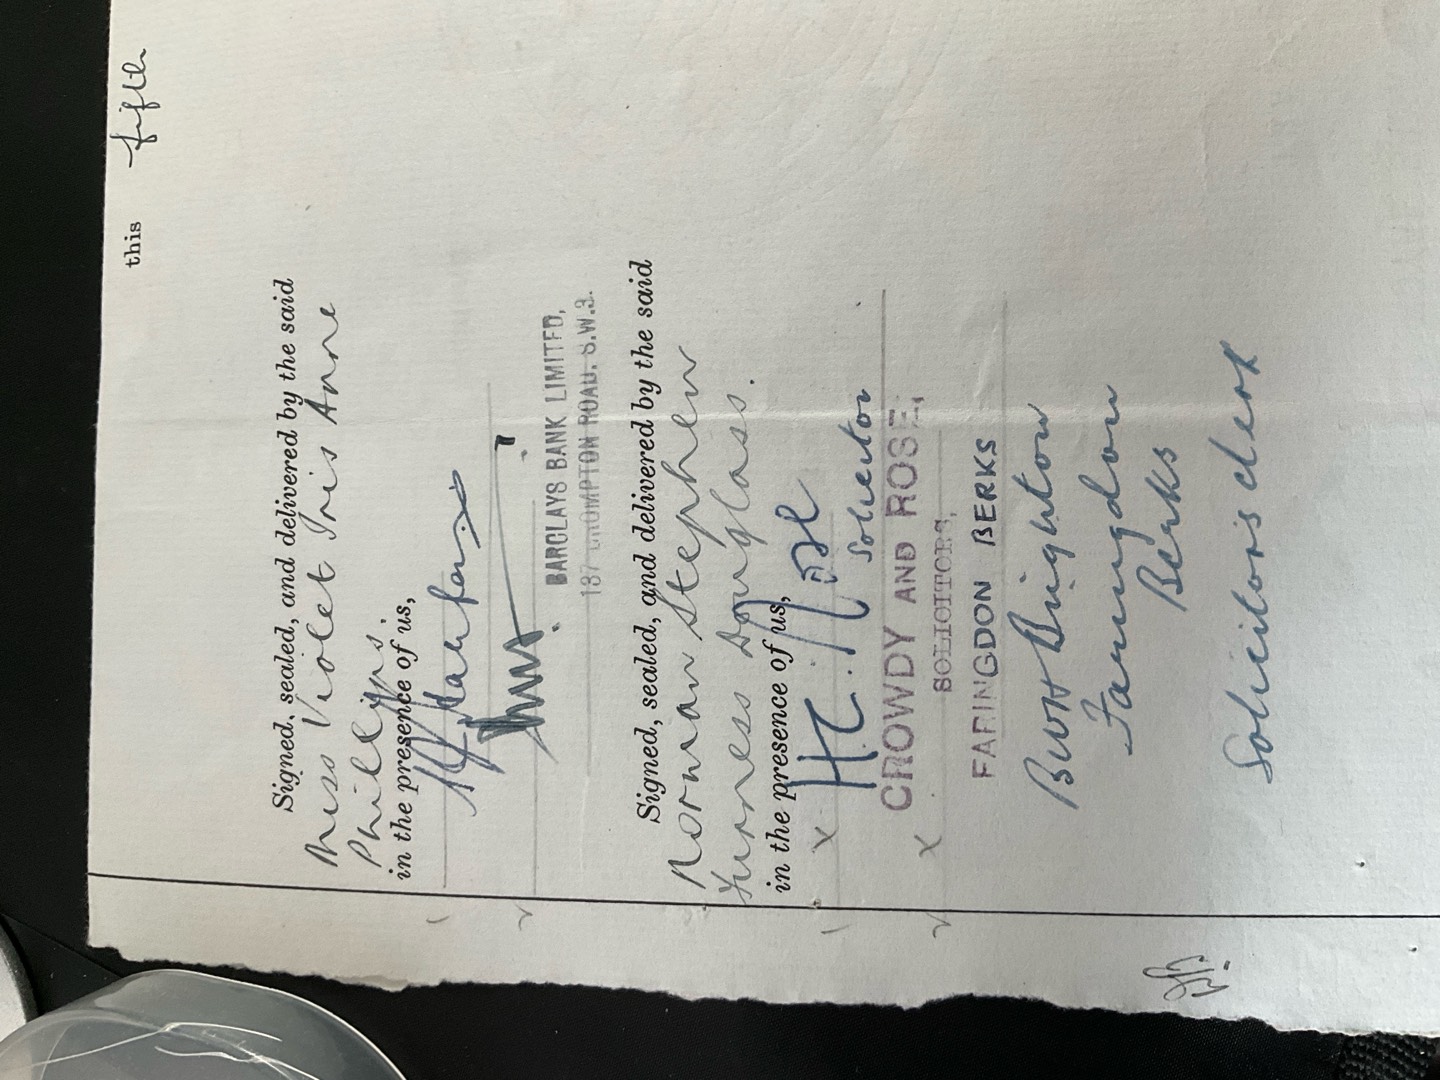 this fifth
Signed, sealed, and delivered by the said
Miss Violet Iris Anne
Phillips.
in the presence of us,
1
2
BARCLAYS BANK LIMITED,
187 BROMPTON ROAD, S.W.3.
Signed, sealed, and delivered by the said
Norman Stephen
Furness Douglass.
in the presence of us,
1 x H.C. Rose
Solicitor
CROWDY AND ROSE,
2 x SOLICITORS,
FARINGDON BERKS
Brighton
Faringdon
Berks
Solicitor's clerk